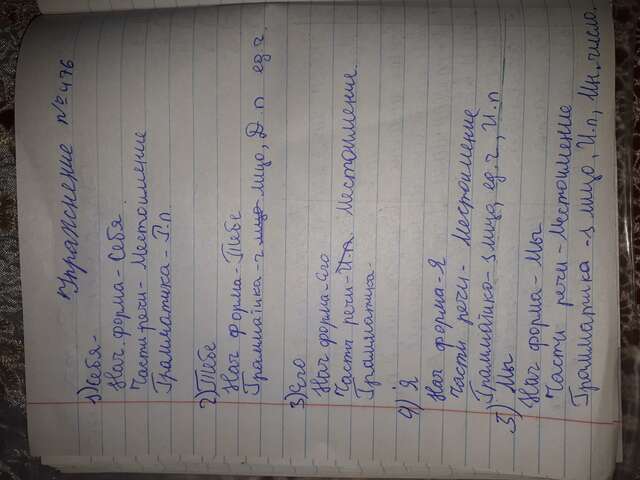 Упражнение №476
1) Себя-
Нач форма- Себя
Части речи- Местоимение
Грамматика- Р.п.
2) Тебе
Нач форма- Тебе
Грамматика- 2 лицо, Д.п ед.ч.
3) Его
Нач форма- Его
Часть речи- И.п. Местоимение
Грамматика-
4) Я
Нач форма- Я
Части речи- Местоимение
Грамматика- 1 лицо, ед.ч, И.п
5) Мы
Нач форма- Мы
Части речи- Местоимение
Грамматика- 1 лицо, И.п, Мн.число.